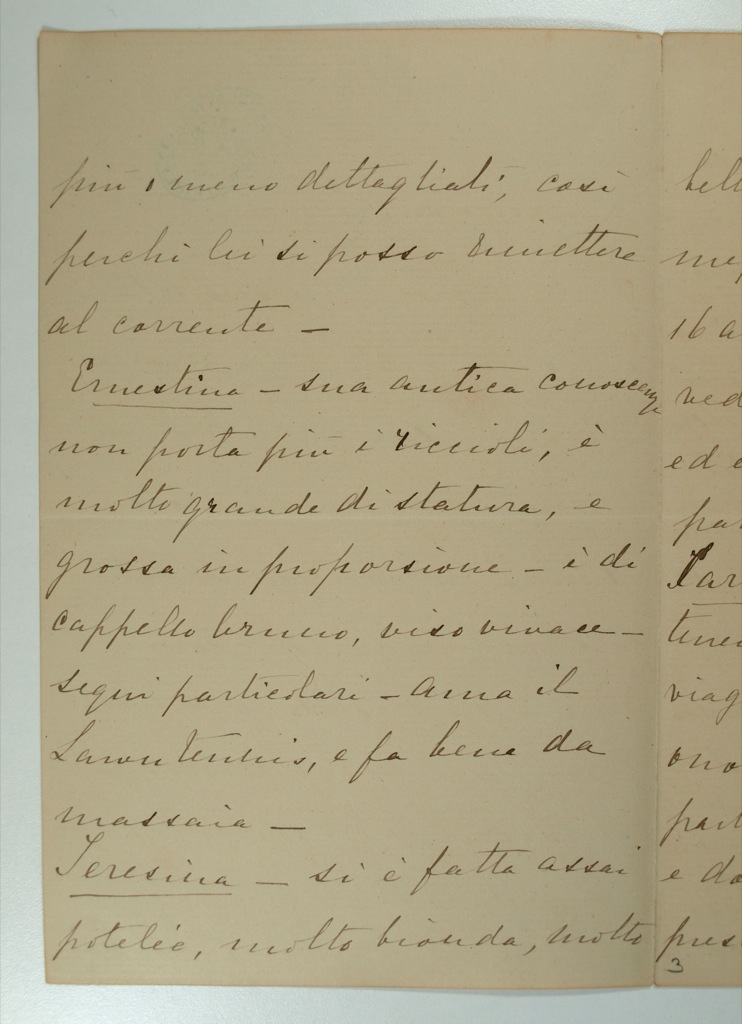 più o meno dettagliati, così
perchè lei si possa rimettere
al corrente –
Ernestina – sua antica conoscenza
non porta più i riccioli, è
molto grande di statura, e
grossa in proporsione – è di
cappello bruno, viso vivace –
segni particolari – ama il
Lawn tennis, e fa bene da
massaia –
Teresina – si è fatta assai
potelée, molto bionda, molto
16 a
ved
ed e
viag
e do
pres
3